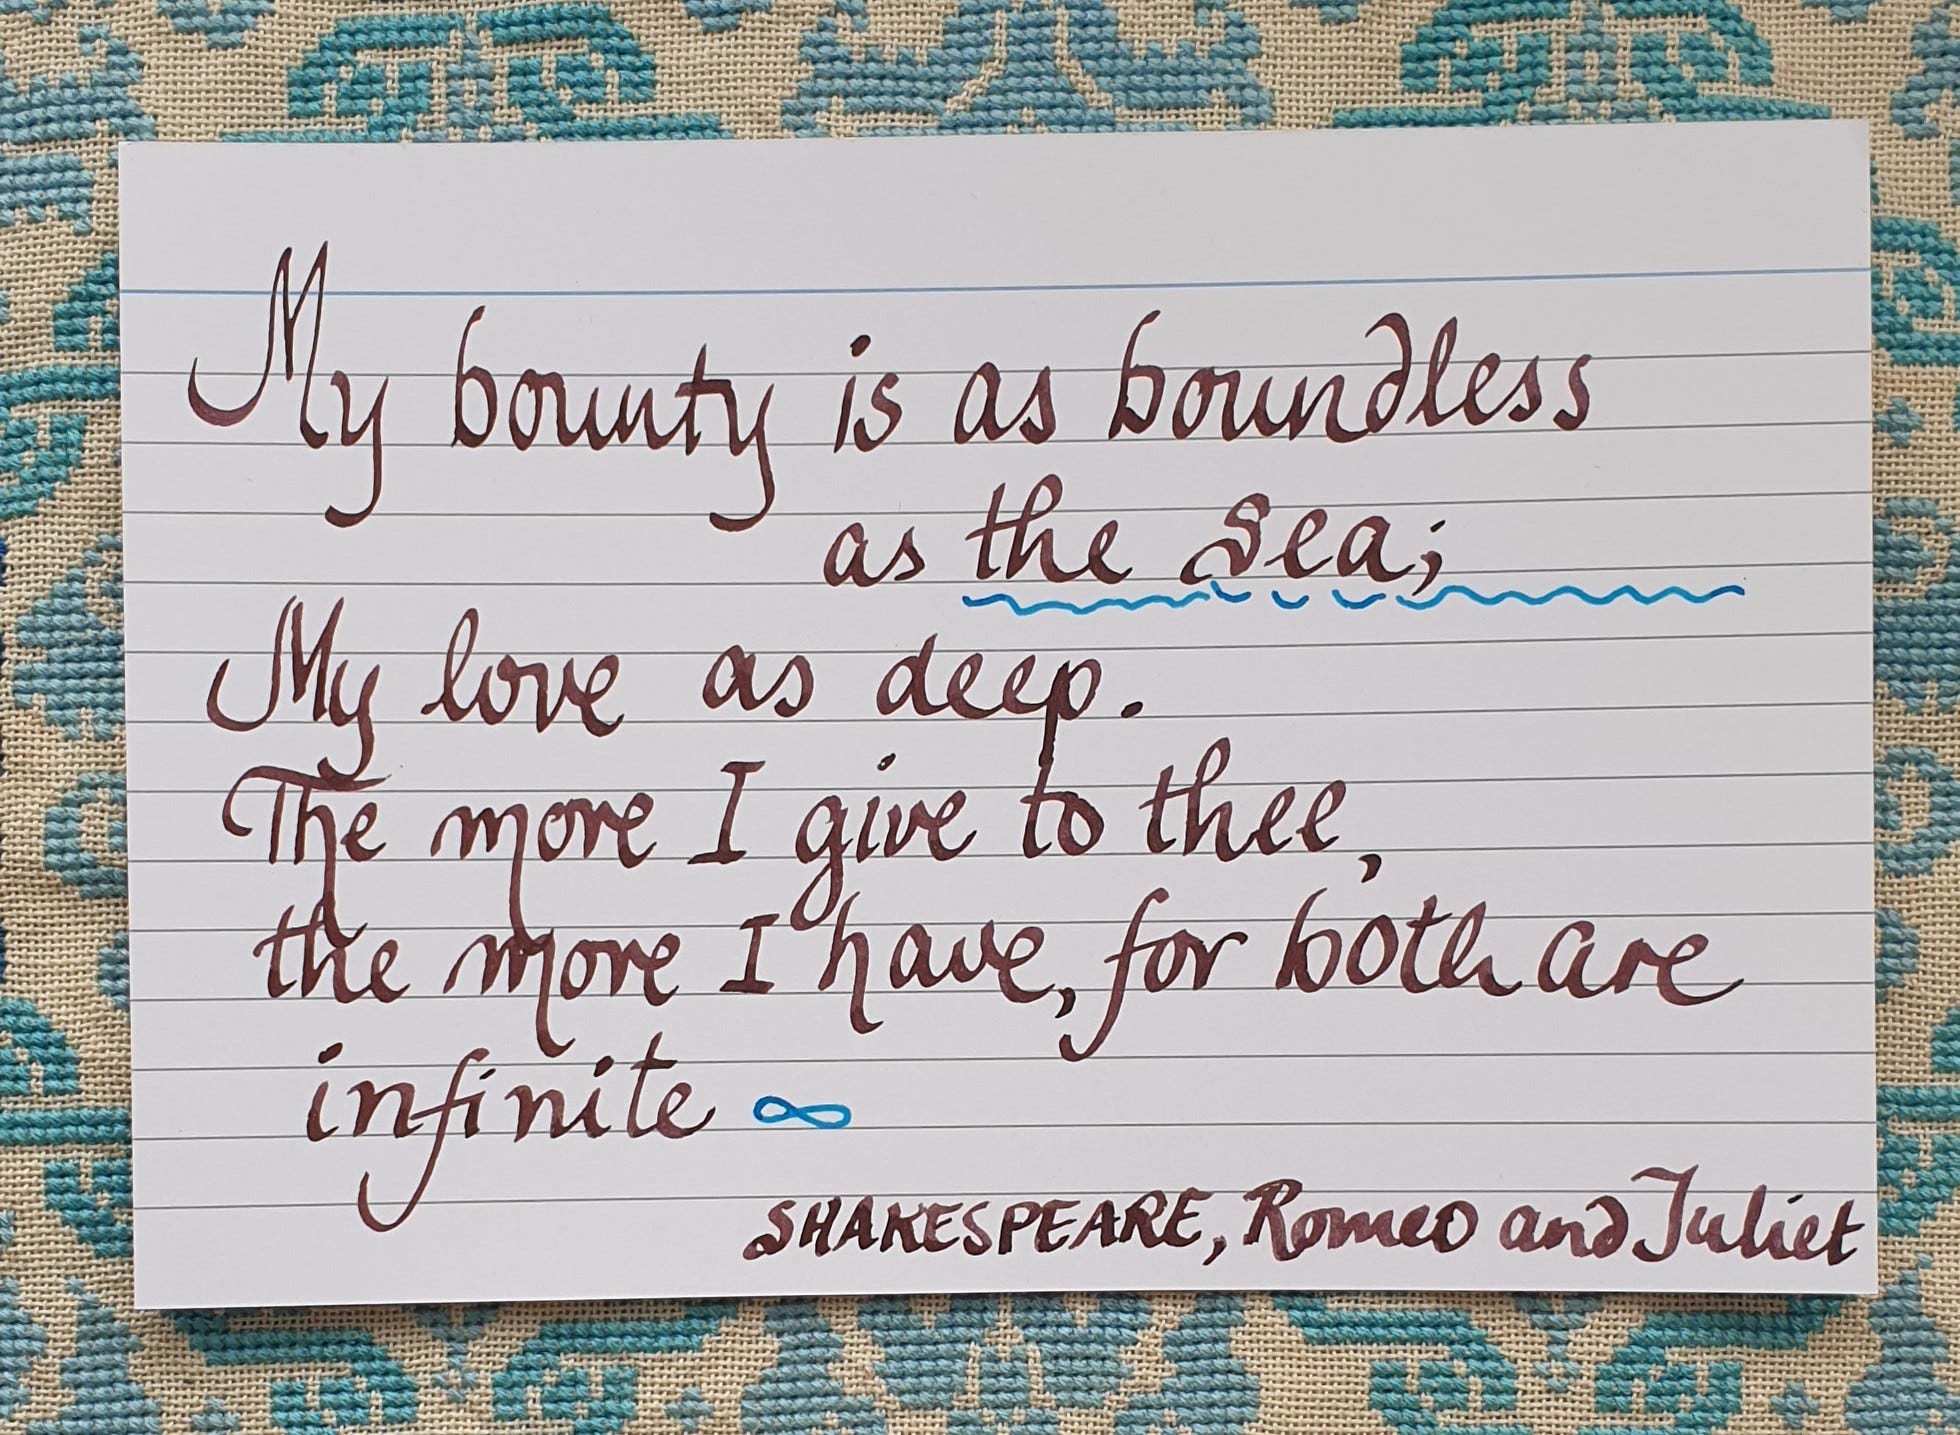 My bounty is as boundless
as the sea;
My love as deep.
The more I give to thee,
the more I have, for both are
infinite ∞
SHAKESPEARE, Romeo and Juliet